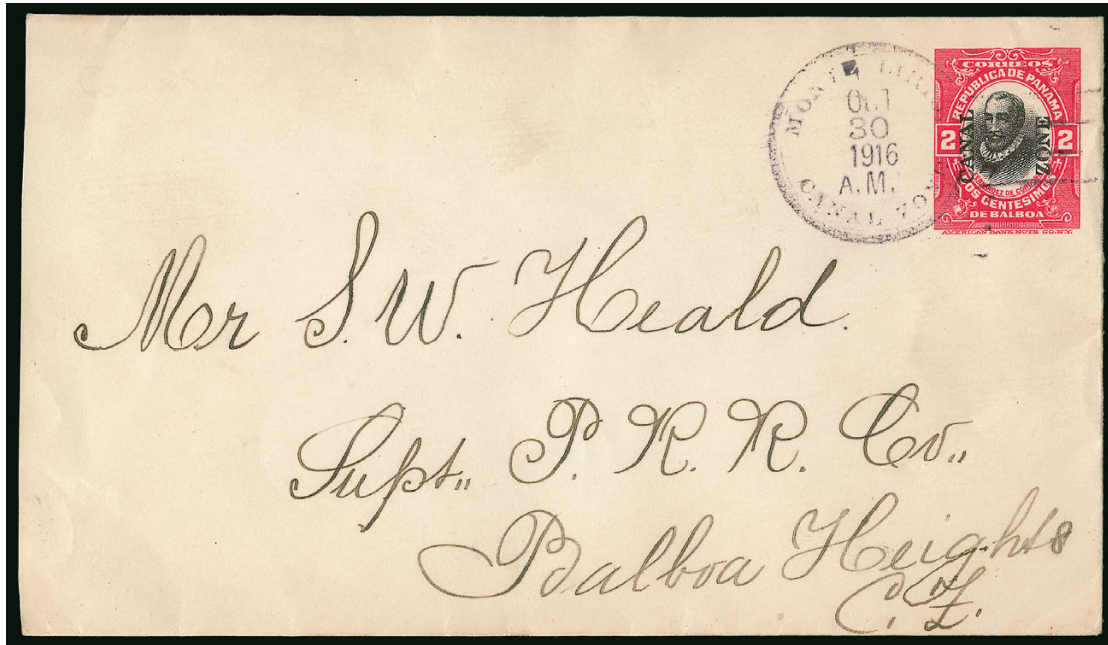 MONTE LIRIO
OCT
30
1916
A.M.
CANAL ZONE
CORREOS
REPÚBLICA DE PANAMA
CANAL
ZONE
2 2
DOS CENTESIMOS
DE BALBOA
AMERICAN BANK NOTE CO. N.Y.
Mr S. W. Heald.
Supt,, P. R. R. Co.,,
Balboa Heights
C. Z.